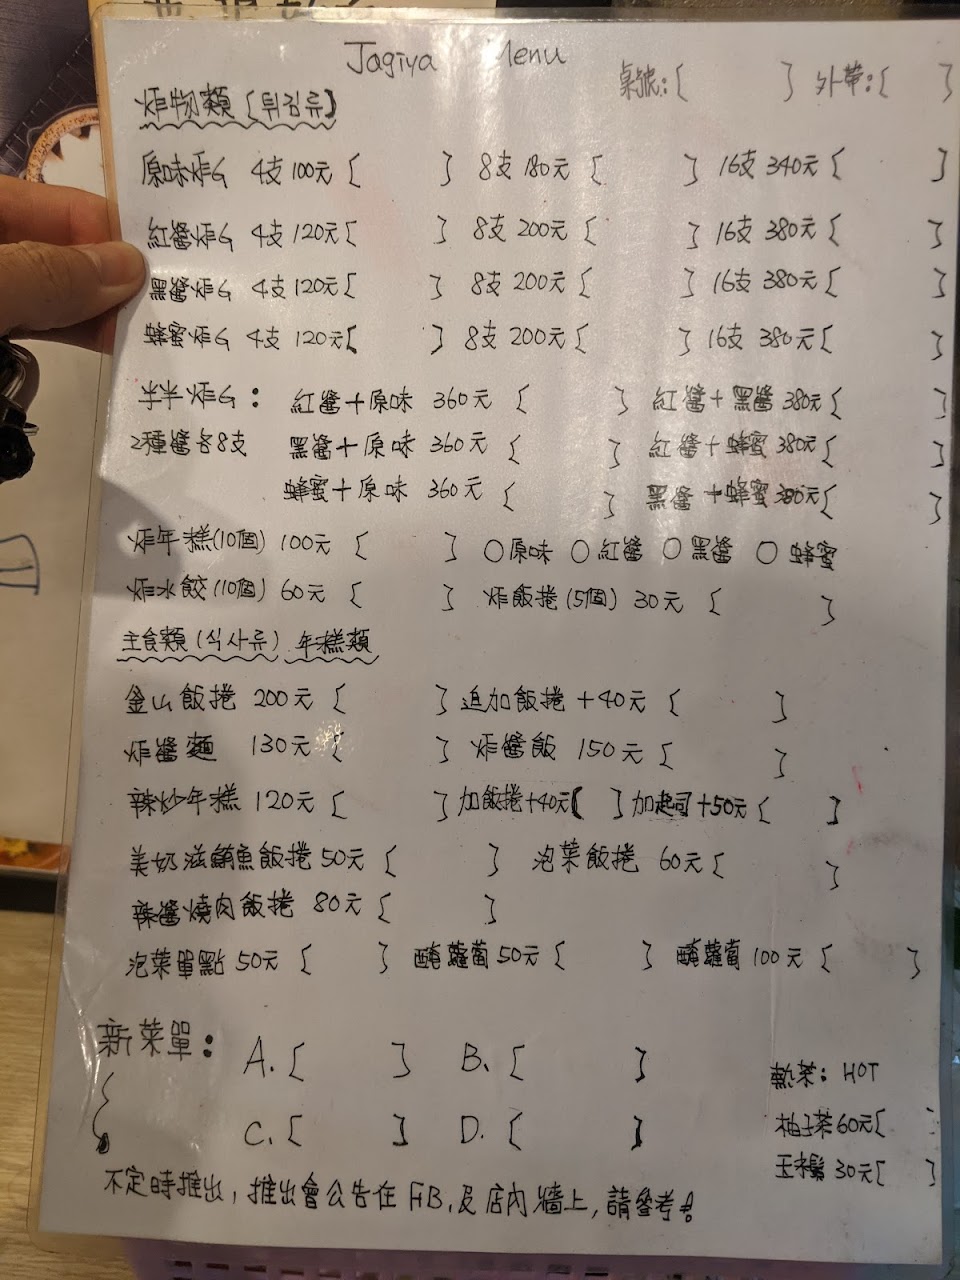 Jagiya Menu
桌號:[ ] 外帶:[ ]
炸物類 [튀김류]
原味炸G 4支 100元 [ ] 8支 180元 [ ] 16支 340元 [ ]
紅醬炸G 4支 120元 [ ] 8支 200元 [ ] 16支 380元 [ ]
黑醬炸G 4支 120元 [ ] 8支 200元 [ ] 16支 380元 [ ]
蜂蜜炸G 4支 120元 [ ] 8支 200元 [ ] 16支 380元 [ ]
半半炸G: 紅醬+原味 360元 [ ] 紅醬+黑醬 380元 [ ]
2種醬各8支 黑醬+原味 360元 [ ] 紅醬+蜂蜜 380元 [ ]
蜂蜜+原味 360元 [ ] 黑醬+蜂蜜 380元 [ ]
炸年糕(10個) 100元 [ ] ○原味 ○紅醬 ○黑醬 ○蜂蜜
炸水餃(10個) 60元 [ ] 炸飯捲(5個) 30元 [ ]
主食類(식사류) 年糕類
釜山飯捲 200元 [ ] 追加飯捲 +40元 [ ]
炸醬麵 130元 [ ] 炸醬飯 150元 [ ]
辣炒年糕 120元 [ ] 加飯捲+40元[ ] 加起司+50元 [ ]
美奶滋鮪魚飯捲 50元 [ ] 泡菜飯捲 60元 [ ]
辣醬燒肉飯捲 80元 [ ]
泡菜單點 50元 [ ] 醃蘿蔔 50元 [ ] 醃蘿蔔 100元 [ ]
新菜單: A. [ ] B. [ ]
C. [ ] D. [ ]
熱茶: HOT
柚子茶 60元[ ]
玉米鬚 30元[ ]
不定時推出,推出會公告在FB,及店內牆上,請參考!